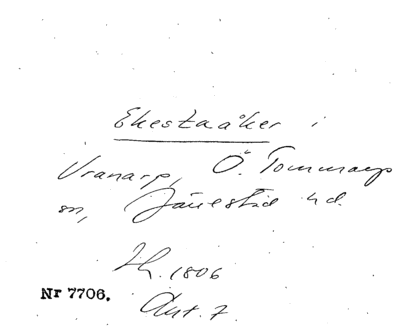 Ekestaåker i
Vranarp, Ö. Tommarps
sn, Järrestad hd.
Sk. 1806
Nr 7706.
Akt. 7